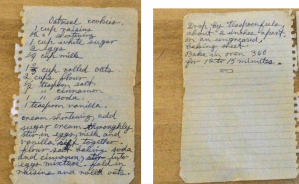 Oatmeal cookies.
1 cup raisins
shortening
1 cup white sugar
2 eggs
cup milk
cup rolled oats
2 cups flour
teaspoon salt
" cinnamon
" soda
1 teaspoon vanilla.
cream shortening, add
sugar cream thoroughly
stir milk and
vanilla sift together
flour salt baking soda
and cinnamon, stir into
eggs mixture. fold in
raisins and rolled oats.
Drop by teaspoonfuls
about 2 inches apart
on an ungreased
baking sheet
Bake in oven 360
for 10 to 15 minutes.